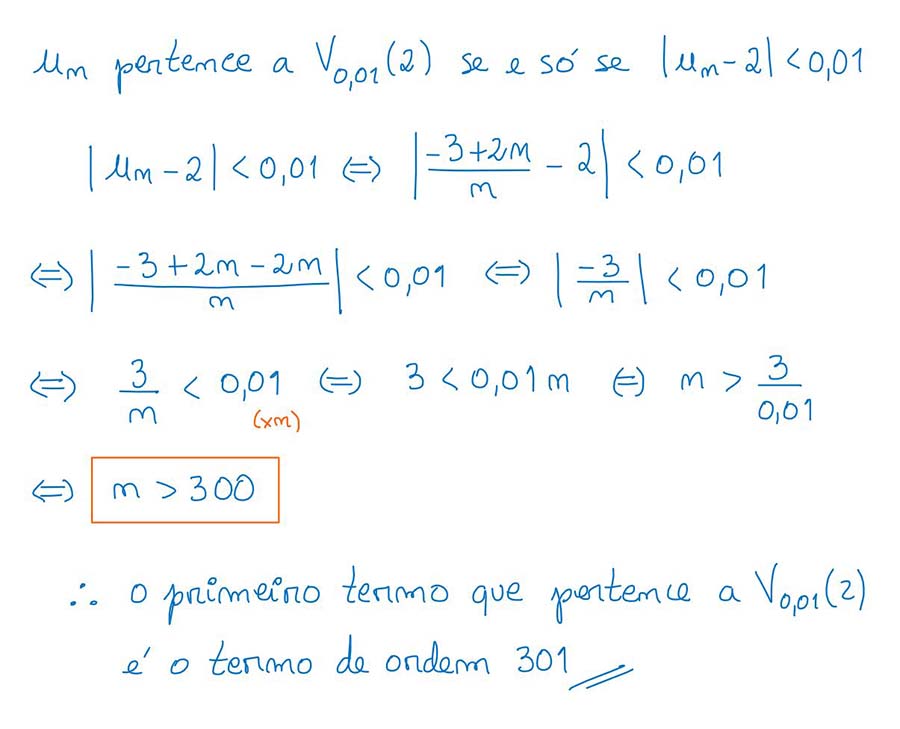 un pertence a V0,01(2) se e só se |un - 2| < 0,01
|un - 2| < 0,01 ⇔ |(-3+2n)/n - 2| < 0,01
⇔ |(-3+2n-2n)/n| < 0,01 ⇔ |-3/n| < 0,01
⇔ 3/n < 0,01 (xn) ⇔ 3 < 0,01n ⇔ n > 3/0,01
⇔ n > 300
∴ o primeiro termo que pertence a V0,01(2)
é o termo de ordem 301